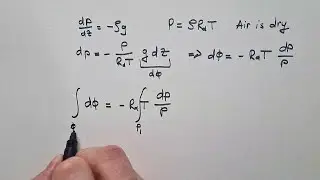 dp/dz = -ρg   P = ρR_dT   Air is dry
dp = - P/(R_dT) g dz   ⇒ dϕ = - R_dT dp/p
dϕ
∫_ϕ dϕ = - R_d ∫_{P₁} T dp/p